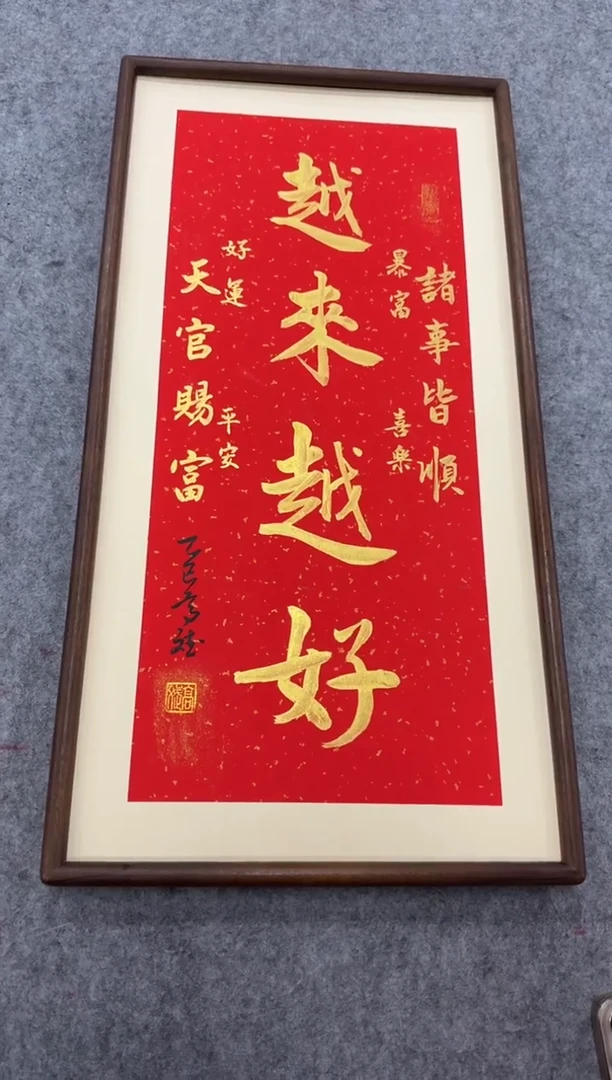 諸事皆順
暴富
喜樂
越來越好
好運
平安
天官賜富
乙巳